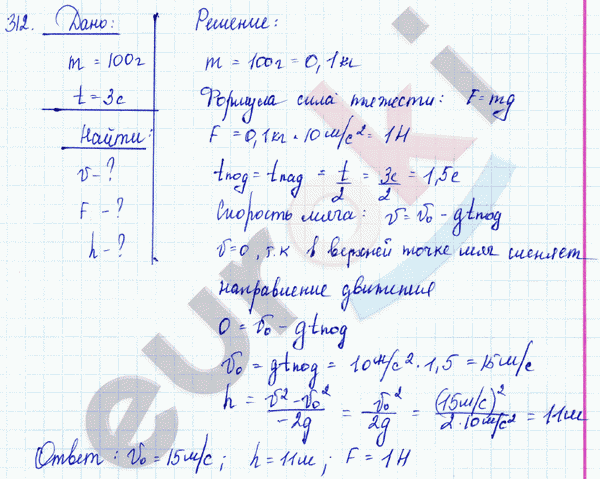 312. Дано: Решение:
m = 100г m = 100г = 0,1кг
t = 3с Формула сила тяжести: F = mg
Найти: F = 0,1кг · 10 м/с² = 1Н
v - ? tпод = tпад = t/2 = 3с/2 = 1,5с
F - ? Скорость мяча: v = v₀ - gtпод
h - ? v = 0, т.к в верхней точке мяч меняет
направление движения
0 = v₀ - gtпод
v₀ = gtпод = 10 м/с² · 1,5 = 15 м/с
h = (v² - v₀²)/(-2g) = v₀²/2g = (15 м/с)²/(2·10 м/с²) = 11м
Ответ: v₀ = 15 м/с; h = 11м; F = 1Н
euroki